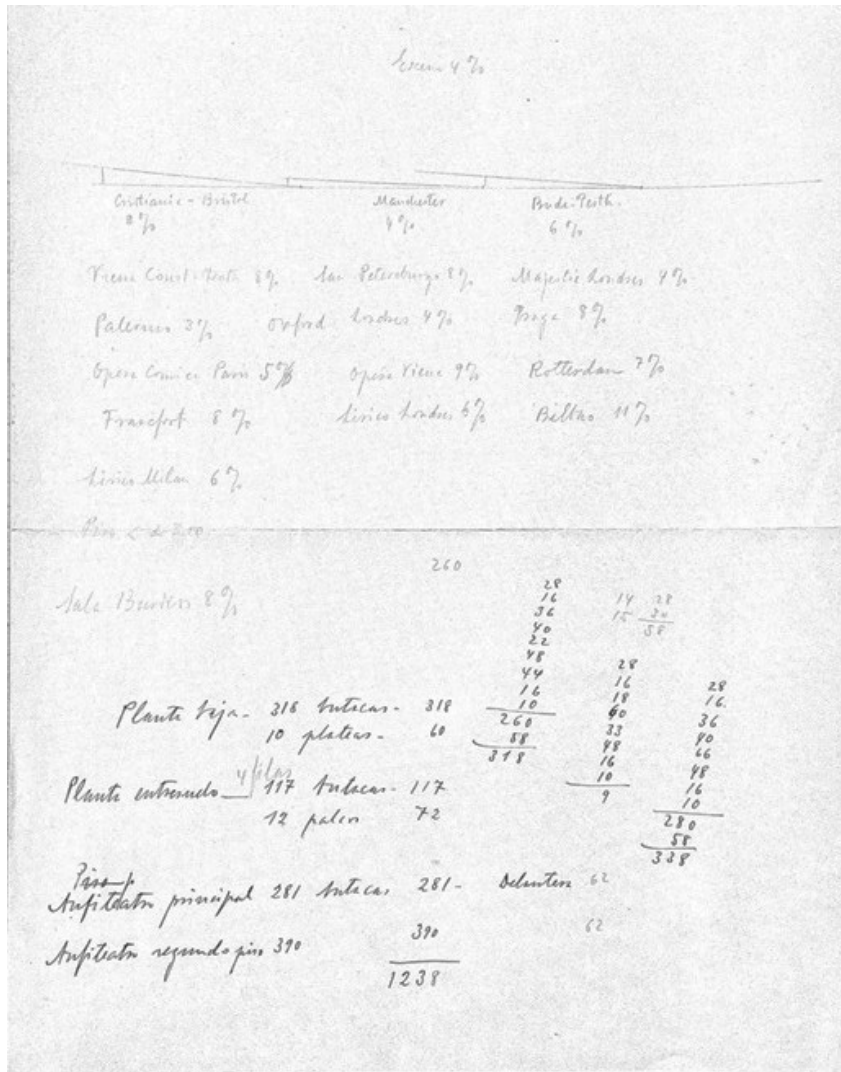 4 %
Cristiania - Bristol Manchester Buda-Pesth.
8 % 4 % 6 %
Viena 8 % San Petersburgo 8 % Majestic Londres 4 %
Palermo 3 % Oxford Londres 4 % Praga 8 %
Opera Comica Paris 5 % Opera Viena 9 % Rotterdam 7 %
Francfort 8 % Lirico Londres 6 % Bilbao 11 %
Lirico Milan 6 %
260
Sala 8 %
28
16
36
40
22
48
44
16
10
260
58
318
14 28
15 30
58
28
16
18
40
33
48
16
10
9
28
16
36
40
66
48
16
10
280
58
338
Planta baja - 318 butacas - 318
10 plateas - 60
4 filas
Planta entresuelo 117 butacas - 117
12 palcos 72
Piso
Anfiteatro principal 281 butacas 281 - Delantera 62
Anfiteatro segundo piso 390 390 62
1238